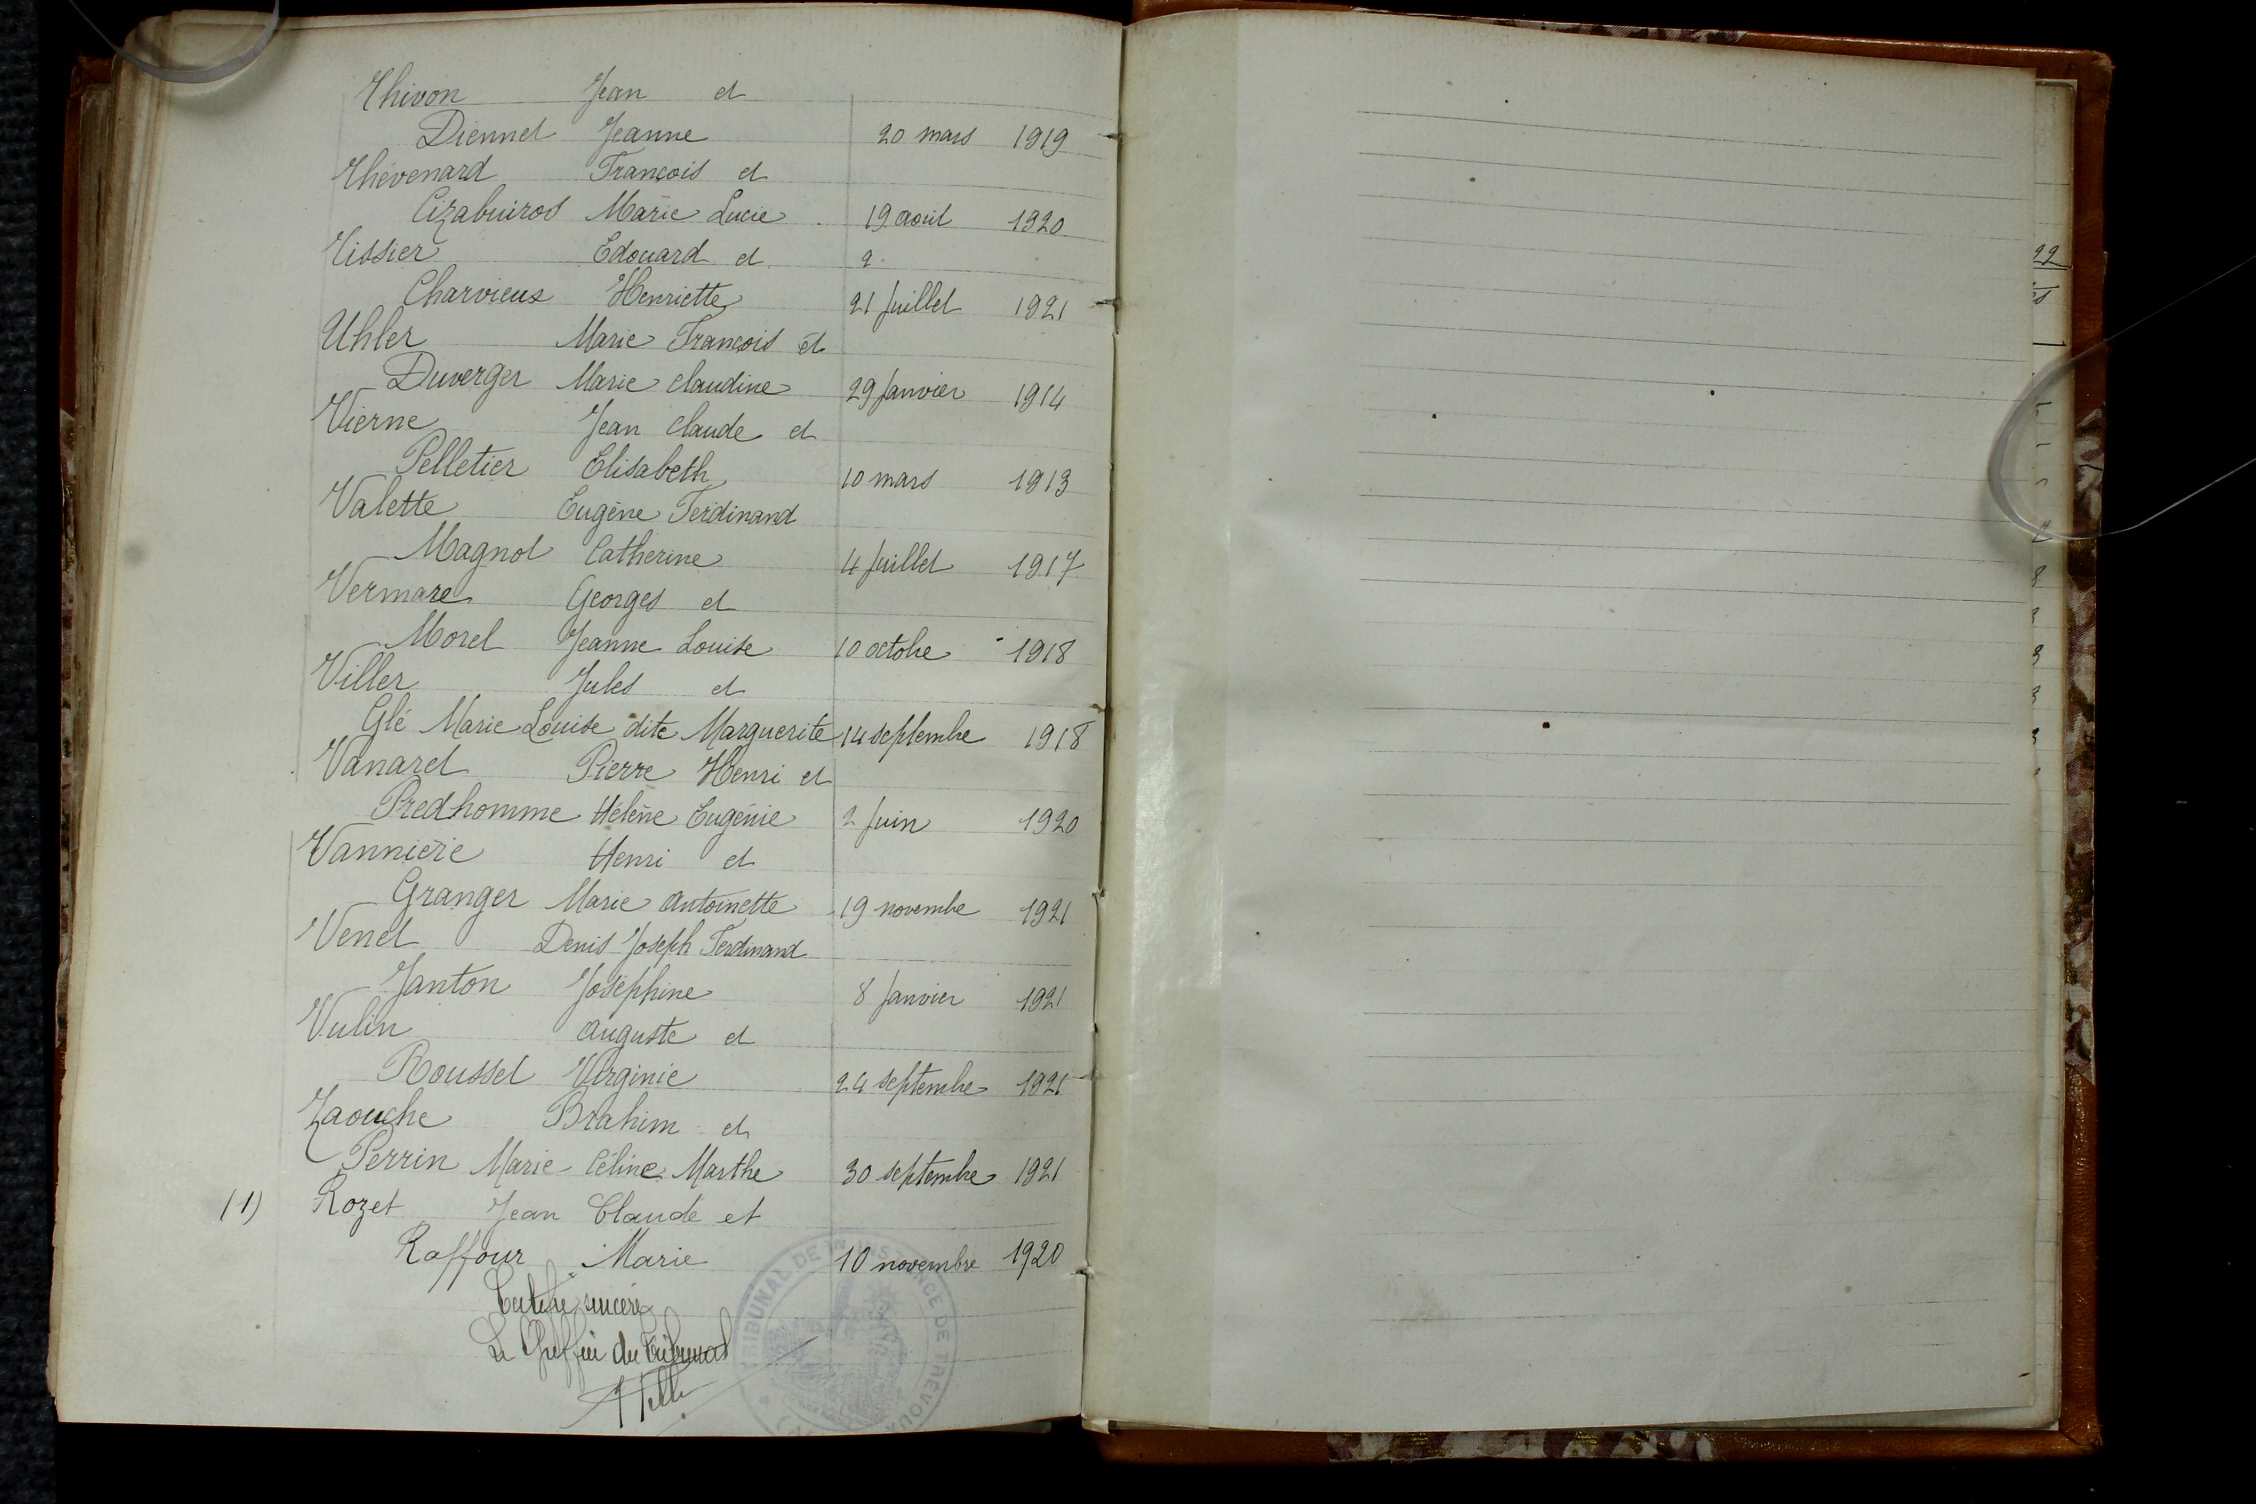 Thivon Jean et
Diennet Jeanne 20 mars 1919
Thévenard François et
Azabuiros Marie Lucie 19 août 1920
Tissier Edouard et 2
Charvieux Henriette 21 Juillet 1921
Uhler Marie François et
Duverger Marie Claudine 29 Janvier 1914
Vierne Jean Claude et
Pelletier Elisabeth 10 mars 1913
Valette Eugène Ferdinand
Magnot Catherine 4 Juillet 1917
Vermare Georges et
Morel Jeanne Louise 10 octobre 1918
Viller Jules et
Glé Marie Louise dite Marguerite 14 septembre 1918
Vanaret Pierre Henri et
Predhomme Hélène Eugénie 2 Juin 1920
Vannière Henri et
Granger Marie Antoinette 19 novembre 1921
Venet Denis Joseph Ferdinand
Janton Joséphine 8 Janvier 1921
Vulin Auguste et
Roussel Virginie 24 septembre 1921
Zaouche Brahim et
Perrin Marie Céline Marthe 30 septembre 1921
(1) Rozet Jean Claude et
Raffour Marie 10 novembre 1920
Certifié sincère
Le Greffier du Tribunal
TRIBUNAL DE 1re INSTANCE DE TREVOUX